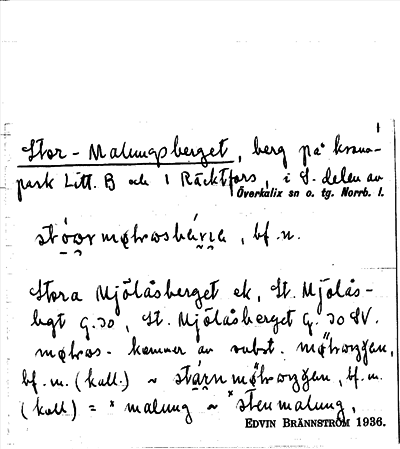 1
Stor-Malungsberget, berg på krono-
park Litt. B och i Räcktfors, i S. delen av
Överkalix sn o. tg. Norrb. l.
bf. n.
Stora Mjölåsberget ek, St. Mjölås-
bgt G. 30, St. Mjölåsberget G. 30 SV.
kommer av subst.
bf. m. (koll.) ~ bf. m.
(koll) = * malung ~ * stenmalung.
EDVIN BRÄNNSTRÖM 1936.